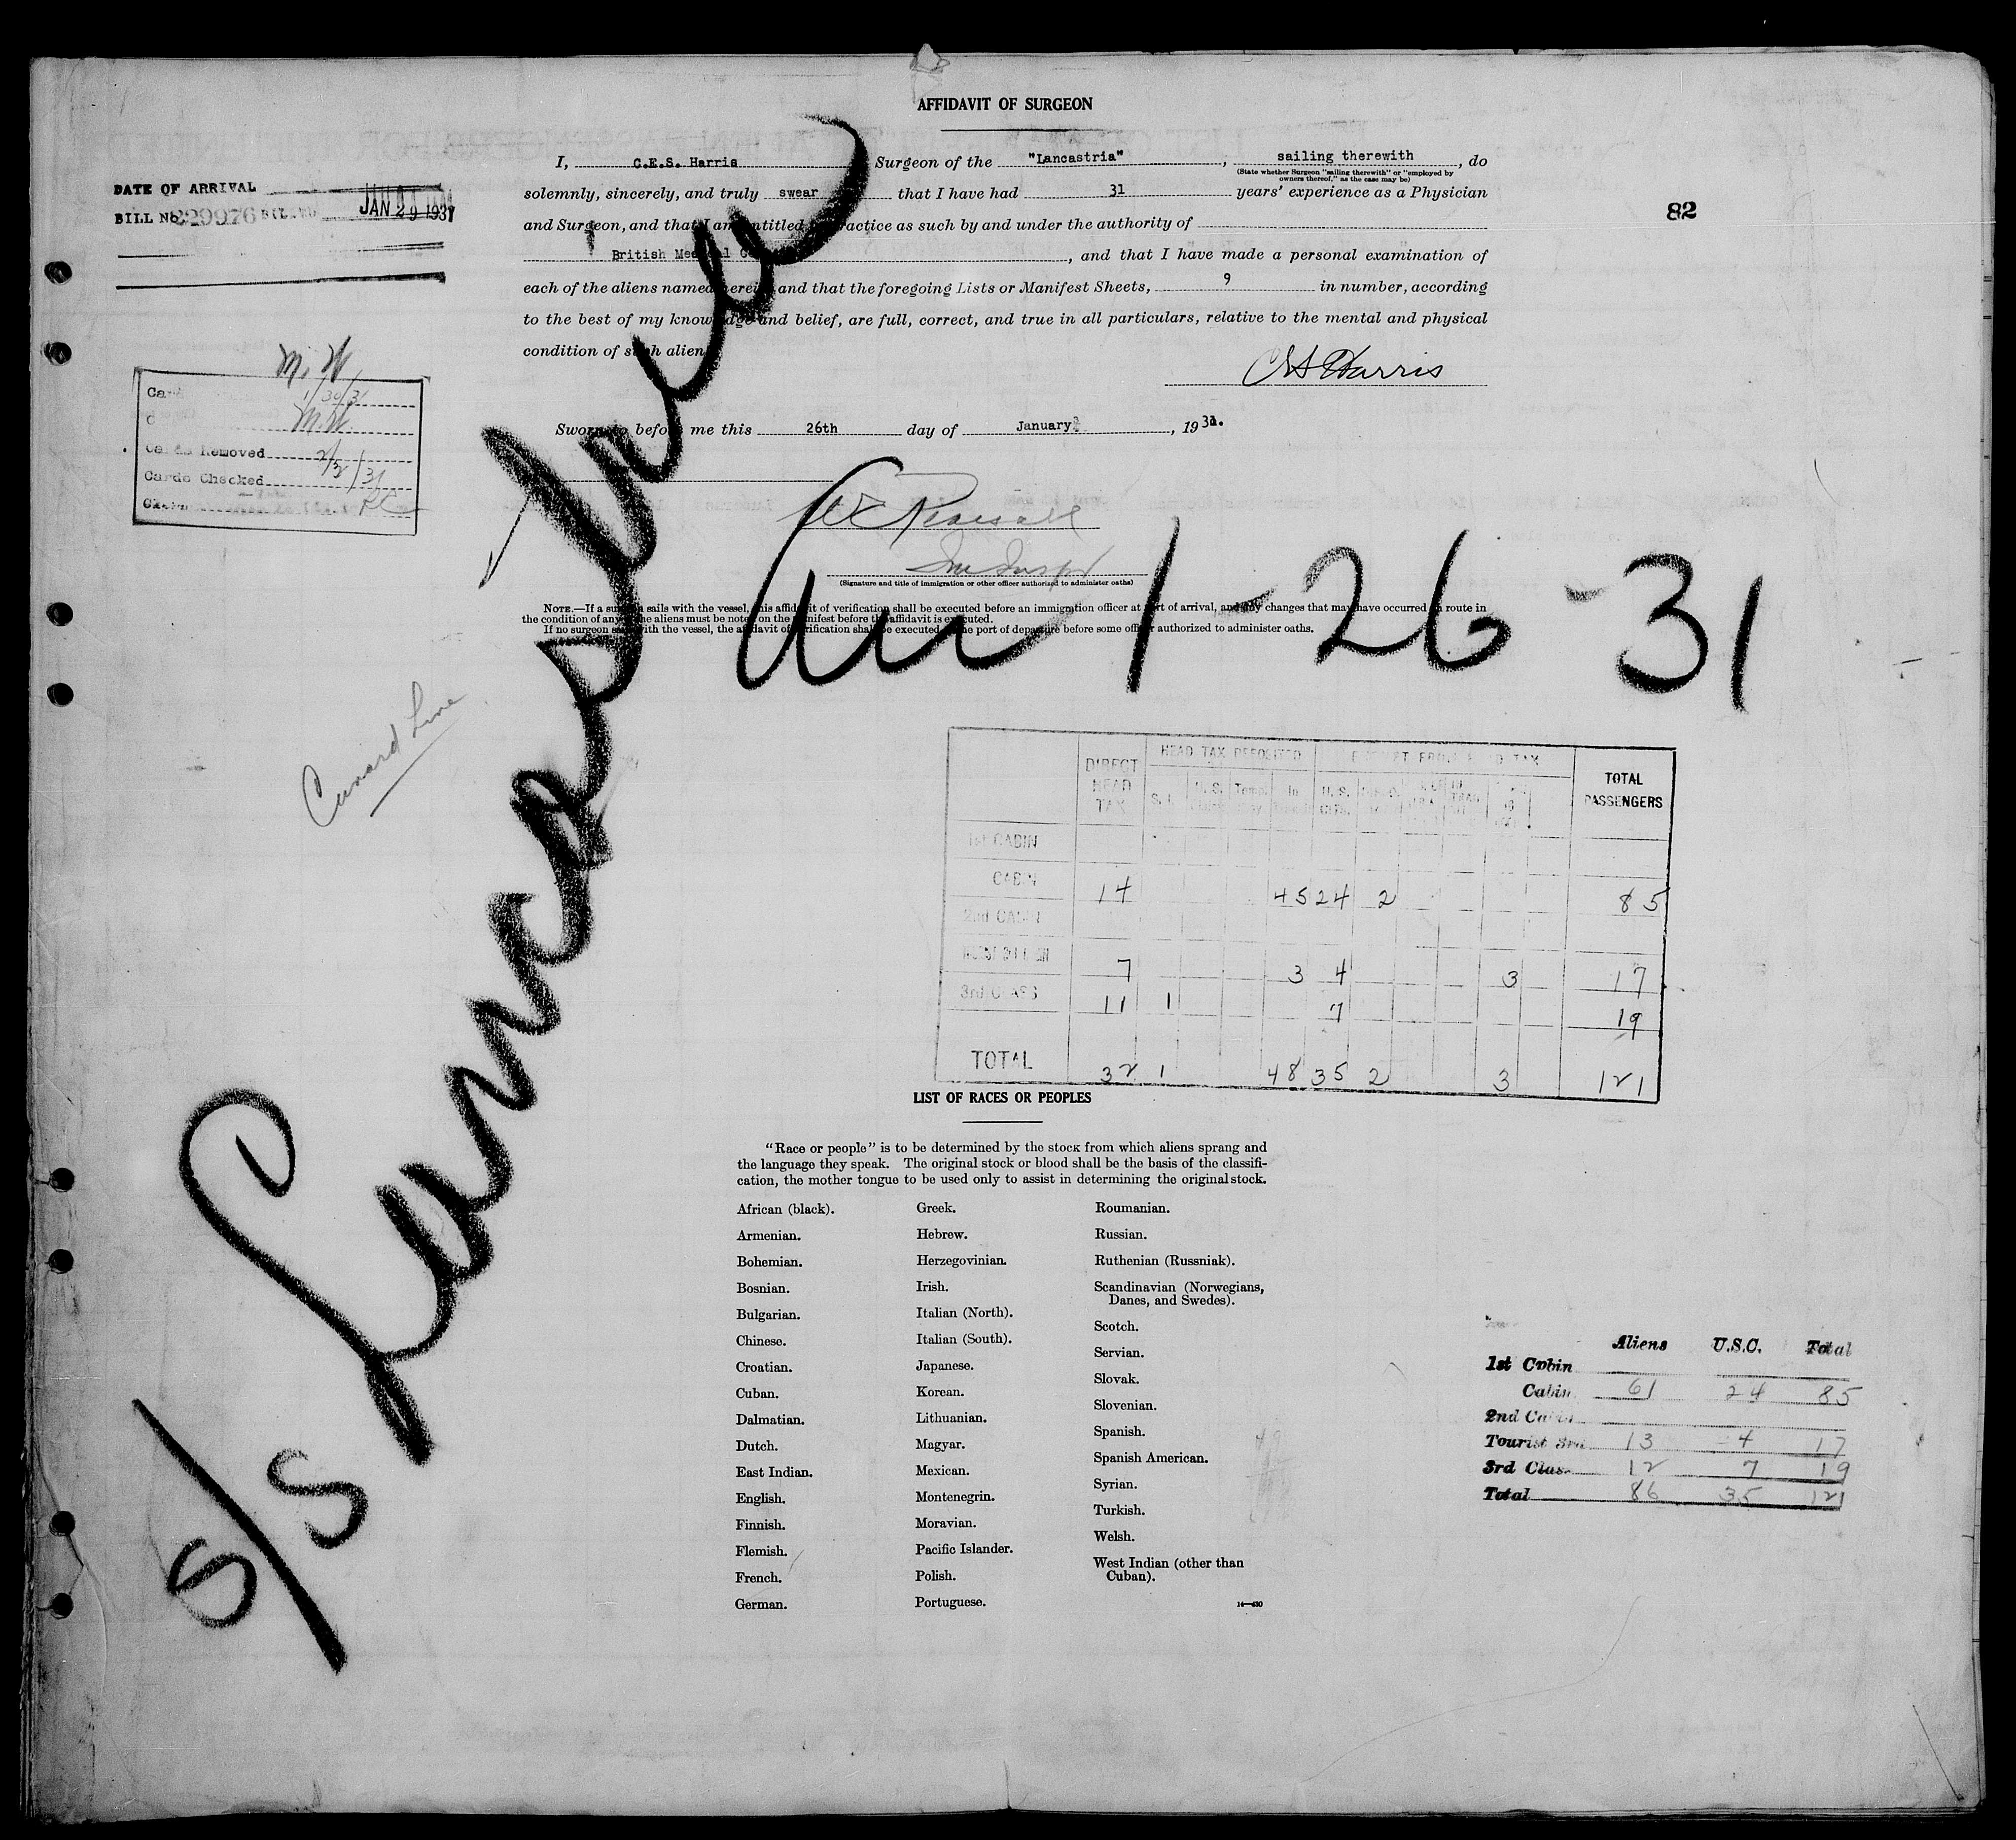 AFFIDAVIT OF SURGEON
I, C.E.S. Harris Surgeon of the "Lancastria", sailing therewith, do
(State whether Surgeon "sailing therewith" or "employed by
owners thereof," as the case may be)
solemnly, sincerely, and truly swear that I have had 31 years' experience as a Physician
and Surgeon, and that I am entitled to practice as such by and under the authority of
British Medical, and that I have made a personal examination of
each of the aliens named herein and that the foregoing Lists or Manifest Sheets, 9 in number, according
to the best of my knowledge and belief, are full, correct, and true in all particulars, relative to the mental and physical
condition of such aliens
Harris
Sworn to before me this 26th day of January, 1931.
(Signature and title of immigration or other officer authorized to administer oaths)
NOTE.—If a surgeon sails with the vessel, this affidavit of verification shall be executed before an immigration officer at port of arrival, and any changes that may have occurred en route in
the condition of any of the aliens must be noted on the manifest before the affidavit is executed.
If no surgeon sails with the vessel, the affidavit of verification shall be executed at the port of departure before some officer authorized to administer oaths.
DATE OF ARRIVAL
BILL No. 229976 JAN 29 1931
82
M.W.
1/30/31
M.W.
Cards Removed 2/2/31
Cards Checked
Cunard Line
S/S Lancastria
Arr 1-26-31
DIRECT HEAD TAX
HEAD TAX DEPOSITED
EXEMPT FROM HEAD TAX
TOTAL PASSENGERS
1st CABIN
CABIN 14 45 24 2 85
2nd CABIN
7 3 4 3 17
3rd CLASS 11 1 7 19
TOTAL 32 1 48 35 2 3 121
LIST OF RACES OR PEOPLES
"Race or people" is to be determined by the stock from which aliens sprang and
the language they speak. The original stock or blood shall be the basis of the classifi-
cation, the mother tongue to be used only to assist in determining the original stock.
African (black).
Armenian.
Bohemian.
Bosnian.
Bulgarian.
Chinese.
Croatian.
Cuban.
Dalmatian.
Dutch.
East Indian.
English.
Finnish.
Flemish.
French.
German.
Greek.
Hebrew.
Herzegovinian.
Irish.
Italian (North).
Italian (South).
Japanese.
Korean.
Lithuanian.
Magyar.
Mexican.
Montenegrin.
Moravian.
Pacific Islander.
Polish.
Portuguese.
Roumanian.
Russian.
Ruthenian (Russniak).
Scandinavian (Norwegians,
Danes, and Swedes).
Scotch.
Servian.
Slovak.
Slovenian.
Spanish.
Spanish American.
Syrian.
Turkish.
Welsh.
West Indian (other than
Cuban).
14—430
Aliens U.S.C. Total
1st Cabin
Cabin 61 24 85
2nd Cabin
Tourist 3rd 13 4 17
3rd Class 12 7 19
Total 86 35 121